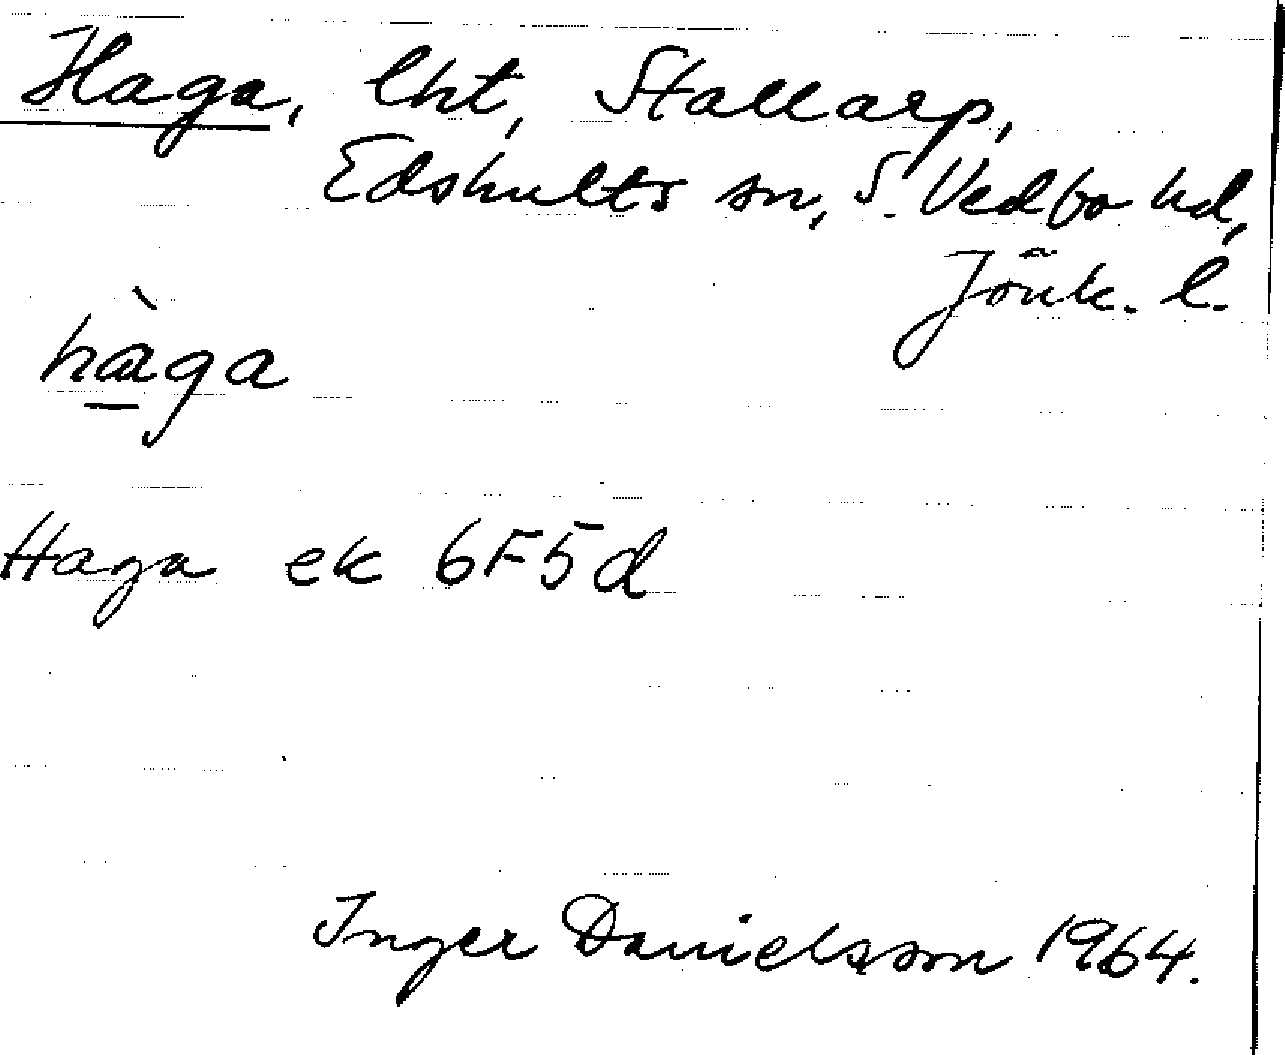 Haga, lht, Stallarp,
Edshults sn, S. Vedbo hd,
Jönk. l.
hàga
Haga ek 6F5d
Inger Danielsson 1964.